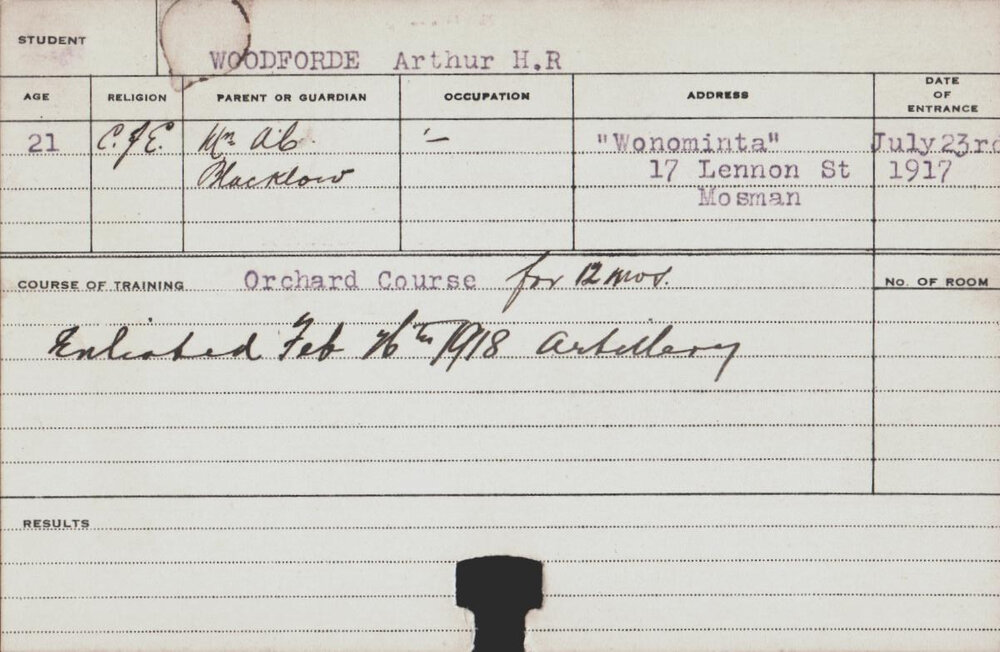 STUDENT
WOODFORDE Arthur H.R
AGE RELIGION PARENT OR GUARDIAN OCCUPATION ADDRESS DATE OF ENTRANCE
21 C.ofE. "Wonominta" July 23rd
Blacklow 17 Lennon St 1917
Mosman
COURSE OF TRAINING Orchard Course for 12 mos. NO. OF ROOM
Enlisted Feb 1918 Artillery
RESULTS